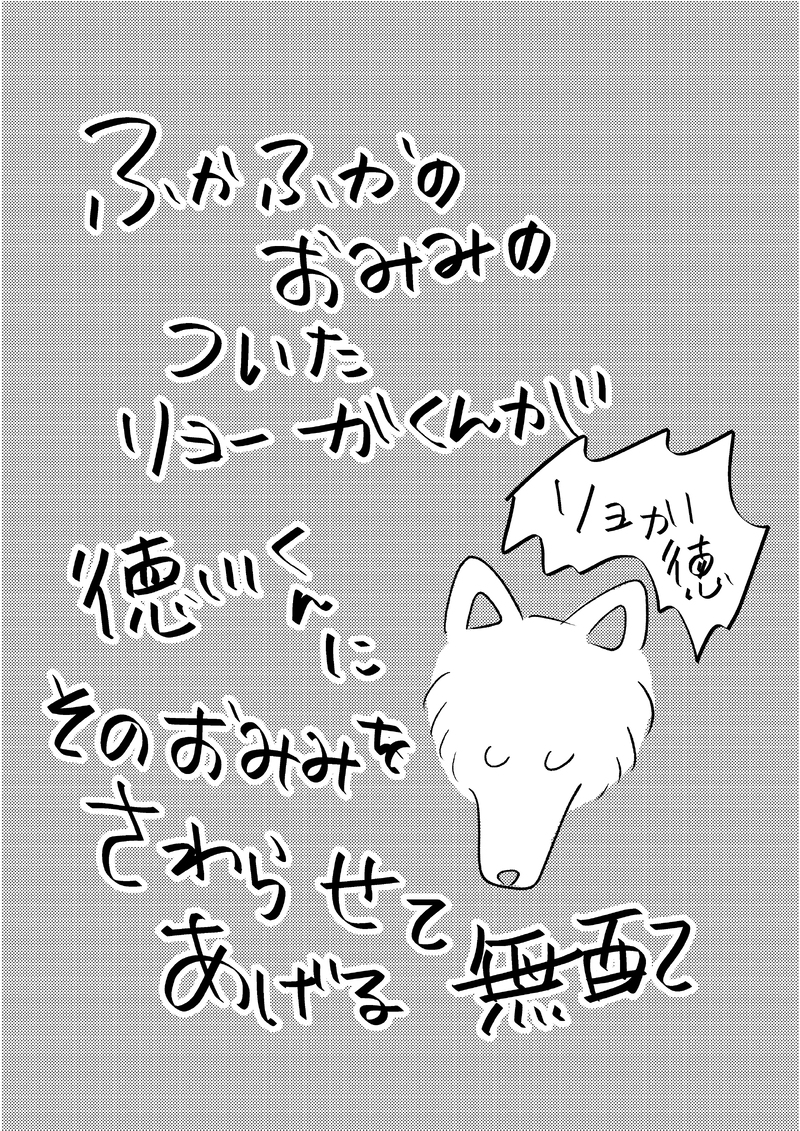 ふかふかの
おみみの
ついた
リョーガくんが
徳川くんに
そのおみみを
さわらせて
あげる無配
リョガ徳